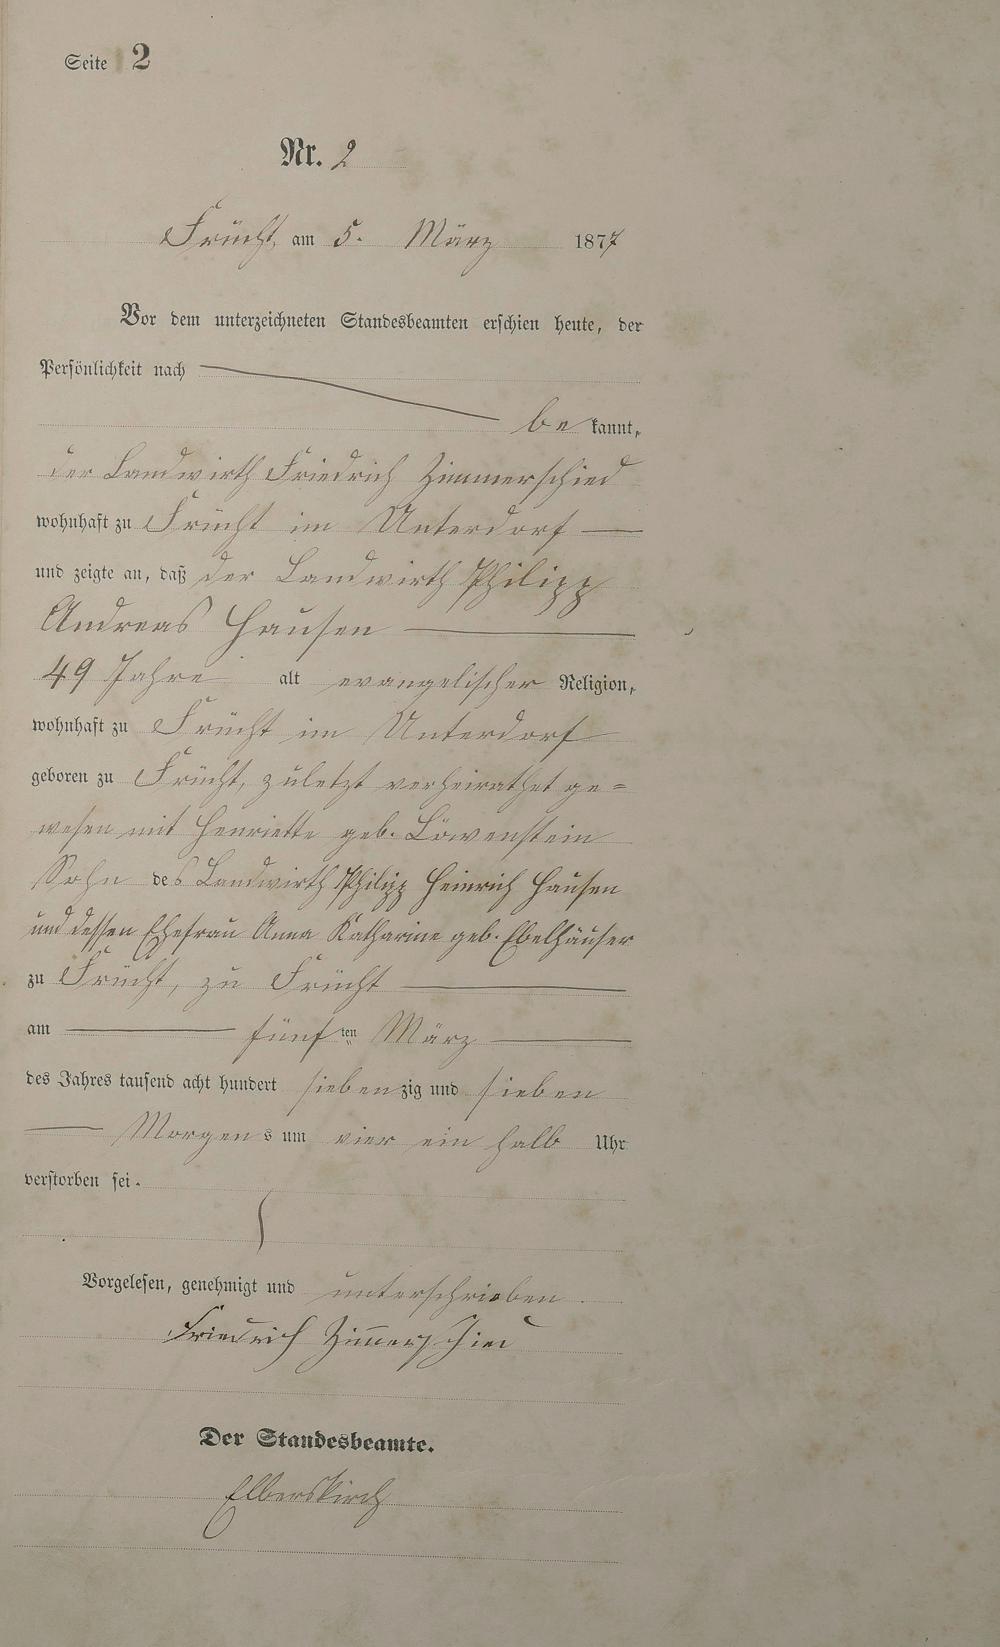 Seite 2
Nr. 2
Frücht, am 5. März 1877
Vor dem unterzeichneten Standesbeamten erschien heute, der
Persönlichkeit nach
be kannt,
der Landwirth Friedrich Zimmerschied
wohnhaft zu Frücht im Unterdorf
und zeigte an, daß der Landwirth Philipp
Andreas Hausen
49 Jahre alt evangelischer Religion,
wohnhaft zu Frücht im Unterdorf
geboren zu Frücht, zuletzt verheirathet ge=
wesen mit Henriette geb. Löwenstein
Sohn des Landwirth Philipp Heinrich Hausen
und dessen Ehefrau Anna Katharine geb. Ebelhäuser
zu Frücht, zu Frücht
am fünf ten März
des Jahres tausend acht hundert sieben zig und sieben
Morgens um vier ein halb Uhr
verstorben sei.
Vorgelesen, genehmigt und unterschrieben.
Friedrich Zimmerschied
Der Standesbeamte.
Elberskirch